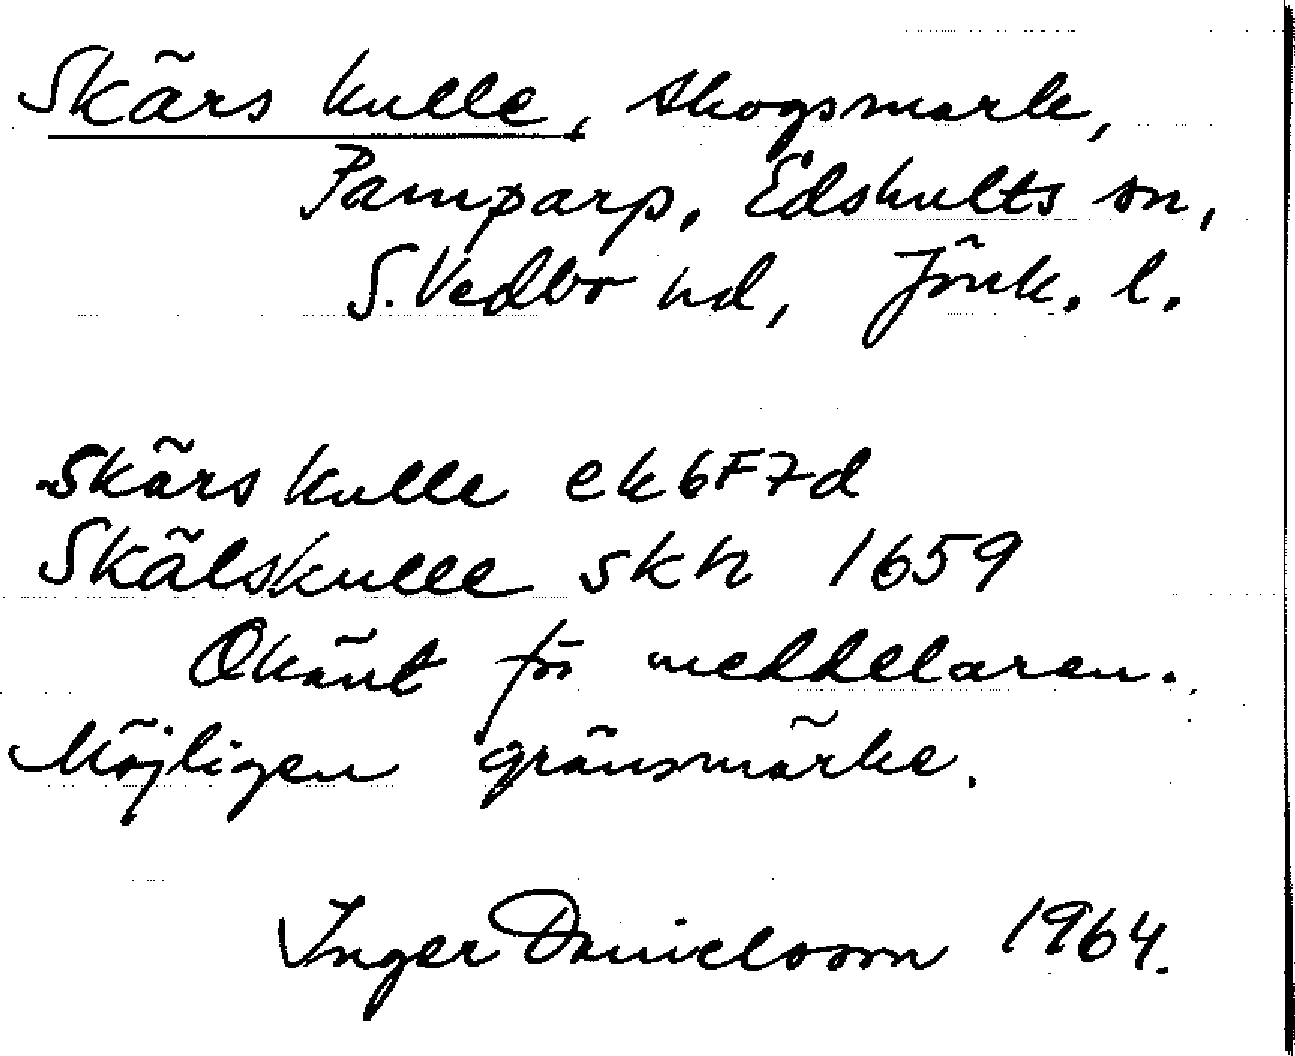 Skärs kulle, skogsmark,
Pamparp, Edshults sn,
S. Vedbo hd, Jönk. l.
Skärs kulle ek 6F7d
Skälskulle skh 1659
Okänt för meddelaren.
Möjligen gränsmärke.
Inger Danielsson 1964.